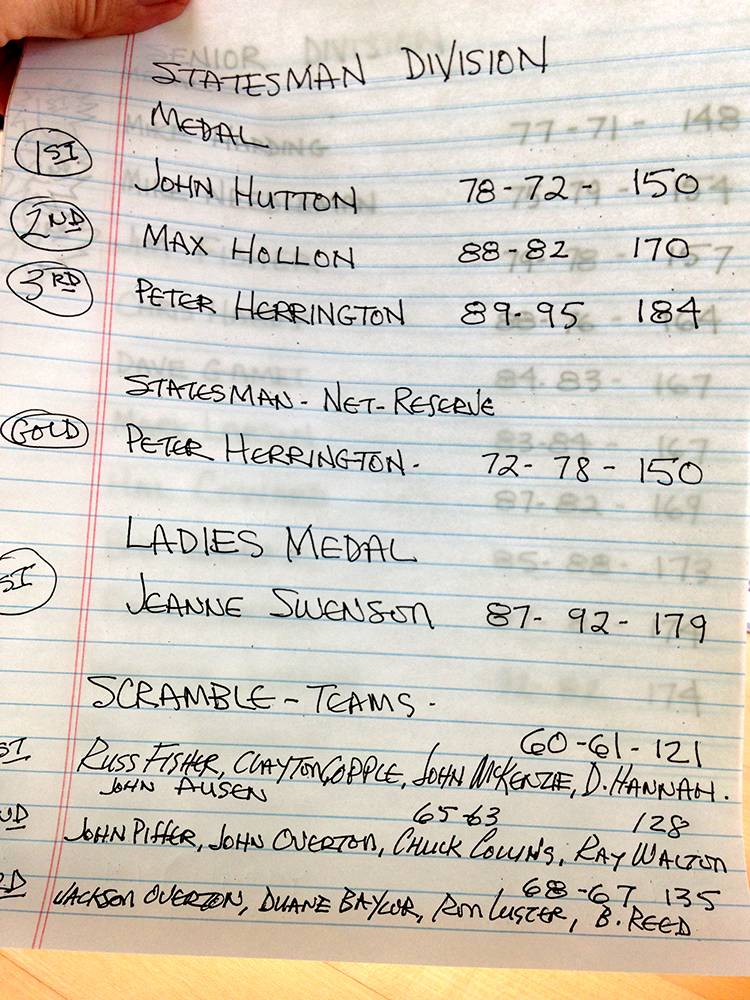 STATESMAN DIVISION
MEDAL
1ST JOHN HUTTON 78-72- 150
2ND MAX HOLLON 88-82 170
3RD PETER HERRINGTON 89-95 184
STATESMAN-NET-RESERVE
GOLD PETER HERRINGTON- 72-78-150
LADIES MEDAL
ST JEANNE SWENSON 87- 92-179
SCRAMBLE-TEAMS-
60-61-121
ST RUSS FISHER, CLAYTON COPPLE, JOHN MCKENZIE, D. HANNAH.
JOHN AUSEN
65-63 128
ND JOHN PIFFER, JOHN OVERTON, CHUCK COLLINS, RAY WALTON
68-67 135
RD JACKSON OVERTON, DUANE BAYLOR, RON LUSTER, B. REED